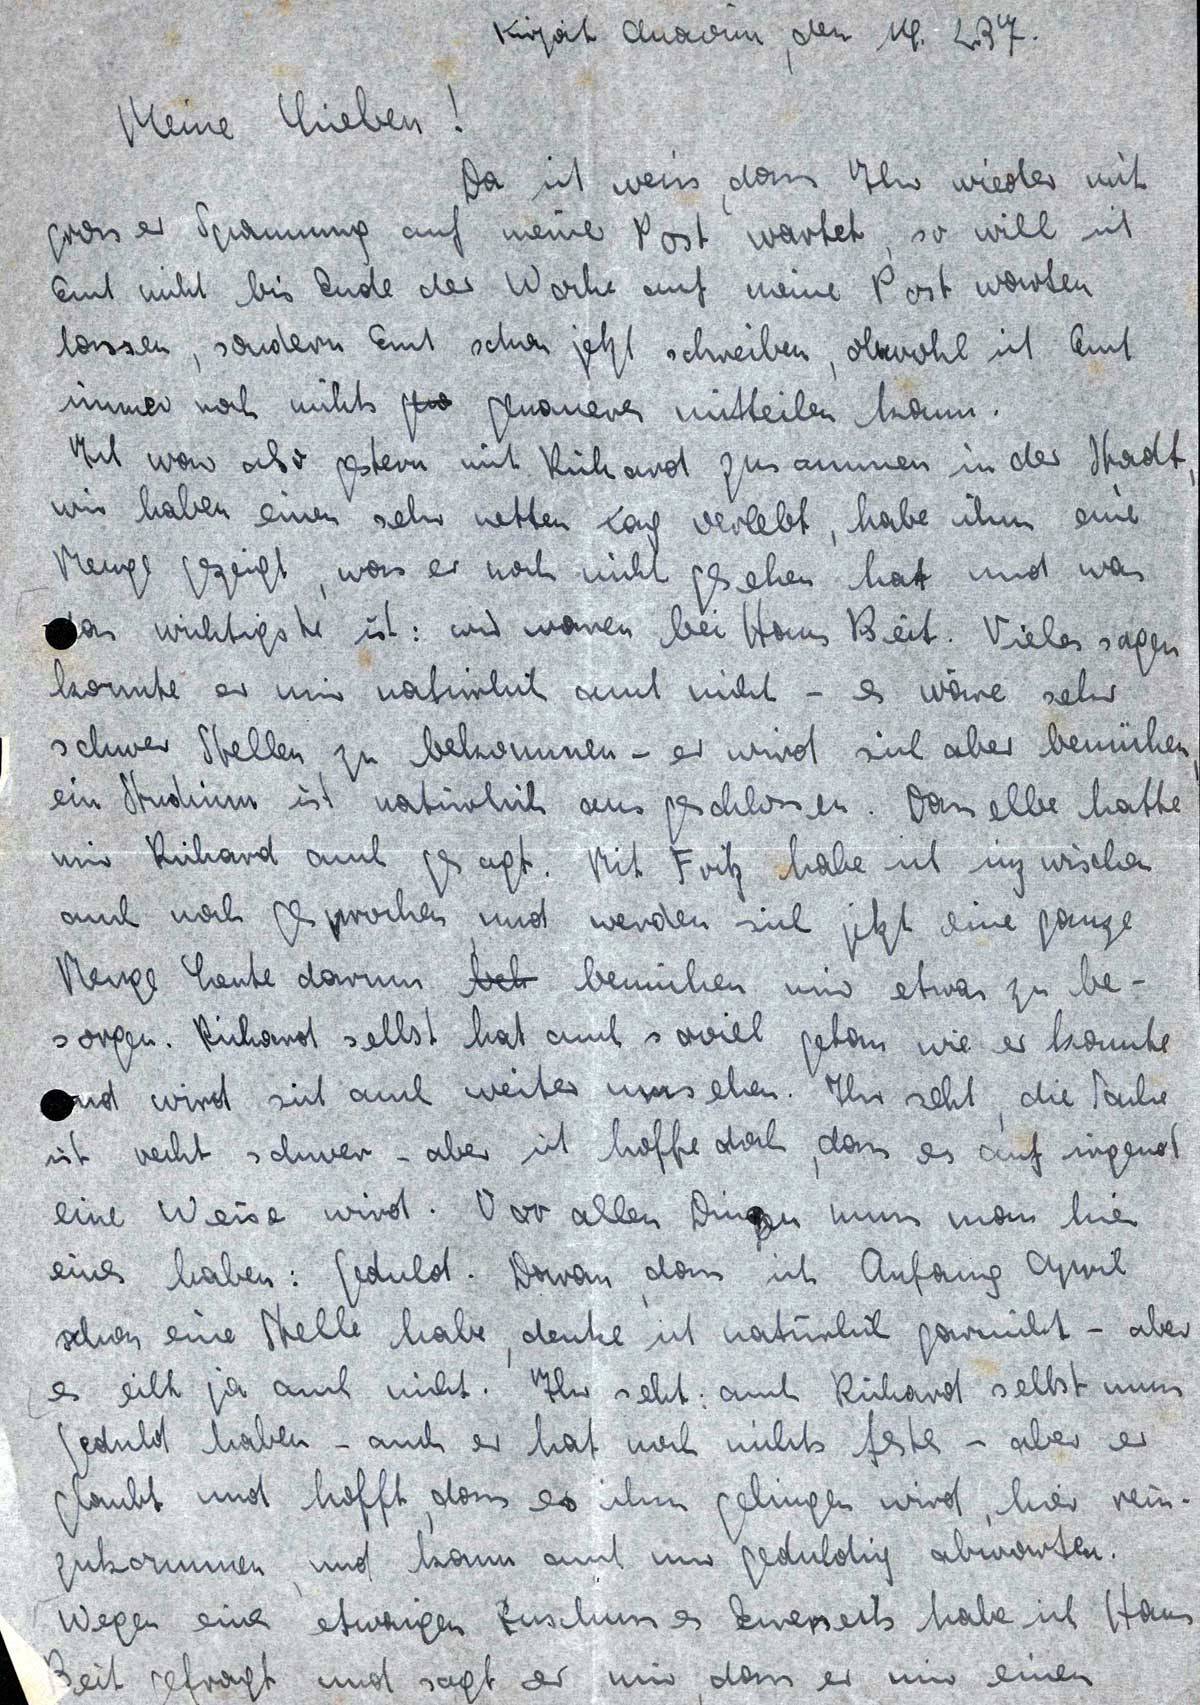 Kirjat Anavim, den 14. 2.37.
Meine Lieben!
Da ich weiss, dass Ihr wieder mit
grosser Spannung auf meine Post wartet, so will ich
Euch nicht bis Ende der Woche auf meine Post warten
lassen, sondern Euch schon jetzt schreiben, obwohl ich Euch
immer noch nichts genaueres mitteilen kann.
Ich war also gestern mit Richard zusammen in der Stadt,
wir haben einen sehr netten Tag verlebt, habe ihm eine
Menge gezeigt, was er noch nicht gesehen hat und was
das wichtigste ist: wir waren bei Hans Beit. Vieles sagen
konnte er mir natürlich auch nicht – es wäre sehr
schwer Stellen zu bekommen – er wird sich aber bemühen,
ein Studium ist natürlich ausgeschlossen. Dasselbe hatte
mir Richard auch gesagt. Mit Fritz habe ich inzwischen
auch noch gesprochen und werden sich jetzt eine ganze
Menge Leute darum bemühen mir etwas zu be-
sorgen. Richard selbst hat auch soviel getan wie er konnte
und wird sich auch weiter umsehen. Ihr seht, die Sache
ist recht schwer – aber ich hoffe doch, dass es auf irgend
eine Weise wird. Vor allen Dingen muss man hier
eines haben: Geduld. Daran, dass ich Anfang April
schon eine Stelle habe, denke ich natürlich garnicht – aber
es eilt ja auch nicht. Ihr seht: auch Richard selbst muss
Geduld haben – auch er hat noch nichts festes – aber er
glaubt und hofft, dass es ihm gelingen wird, hier rein-
zukommen und kann auch nur geduldig abwarten.
Wegen eines etwaigen Zuschusses Eurerseits habe ich Hans
Beit gefragt und sagt er mir, dass er mir einen